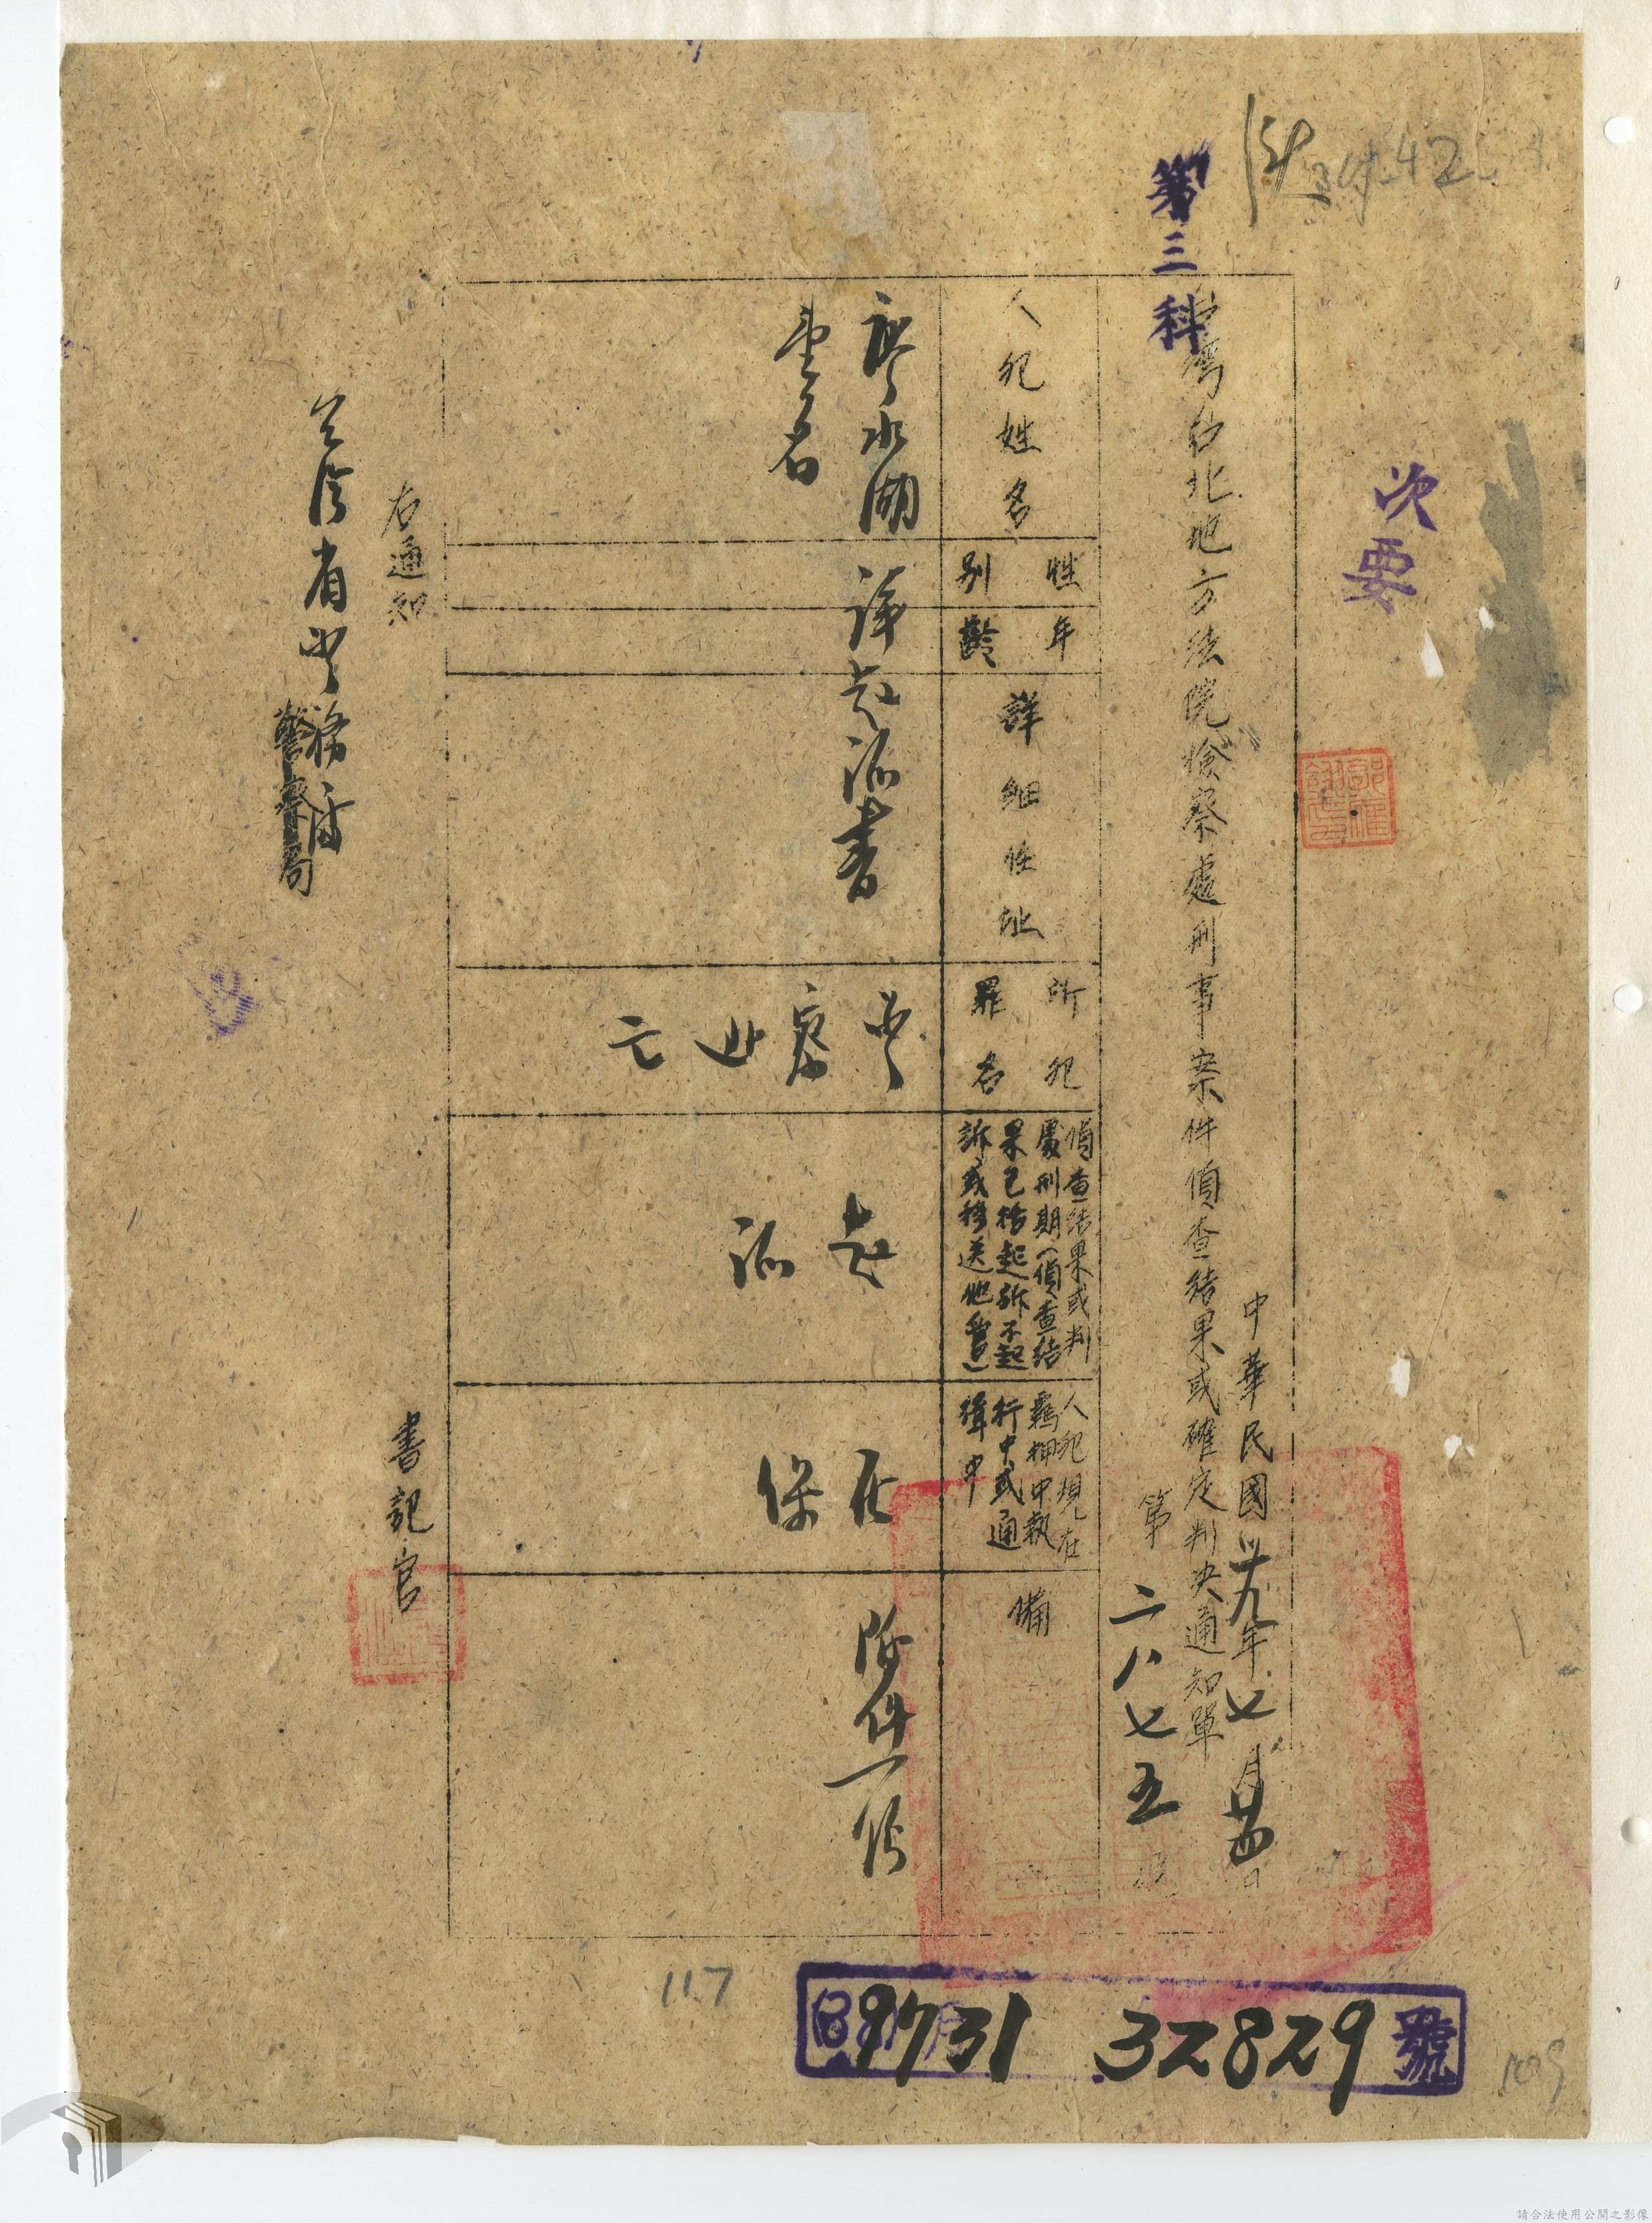 次要
第三科
中華民國卅九年七月廿四日
台灣台北地方法院檢察處刑事案件偵查結果或確定判決通知單
第二八七五號
人犯姓名
性別
年齡
詳細住址
所犯罪名
偵查結果或判
處刑期(偵查結
果包括起訴不起
訴或移送他管)
人犯現在
羈押中執
行中或通
緝中
備
廖水湖
等壹名
詳起訴書
起訴
在保
附件一份
右通知
台湾省警務處
警察局
書記官
號 32829
9731
117
109
請合法使用公開之影像